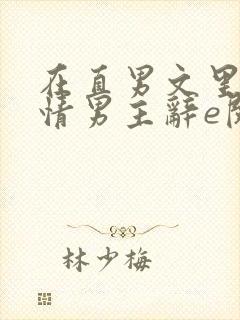 在直男文里
情男主辞e
林少梅